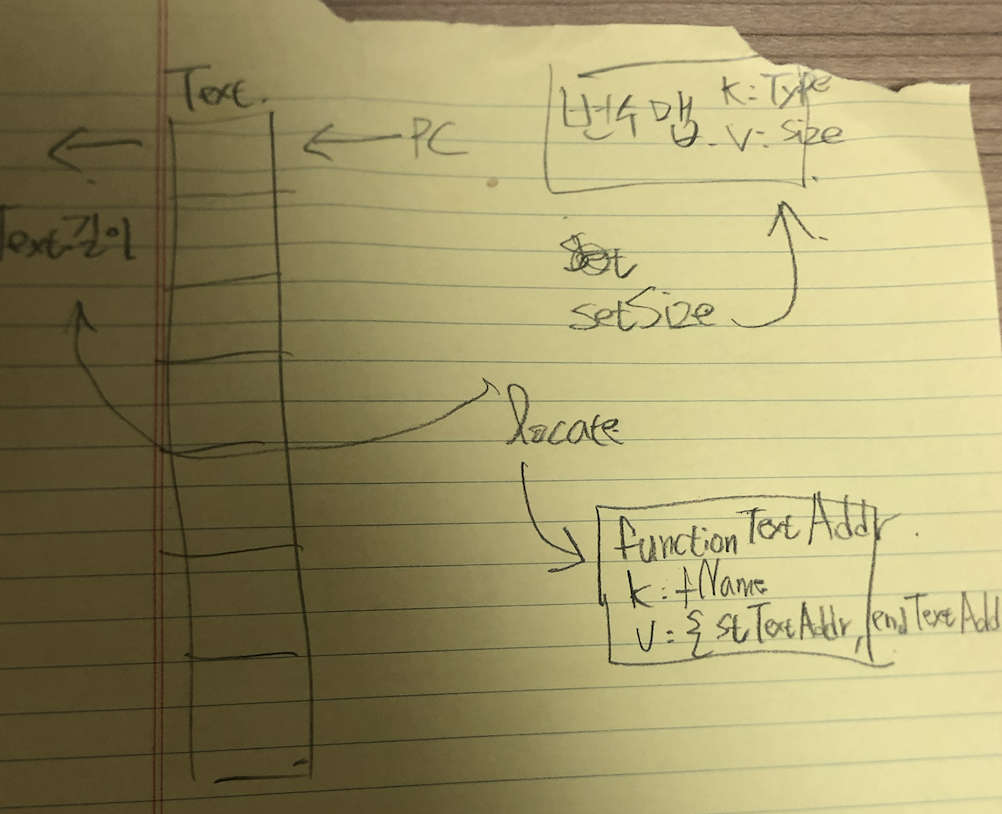 Text.
PC
Text길이
변수맵.
K: Type
V: Size
setSize
locate
functionTextAddr.
K: fName
V: { stTextAddr, endTextAdd